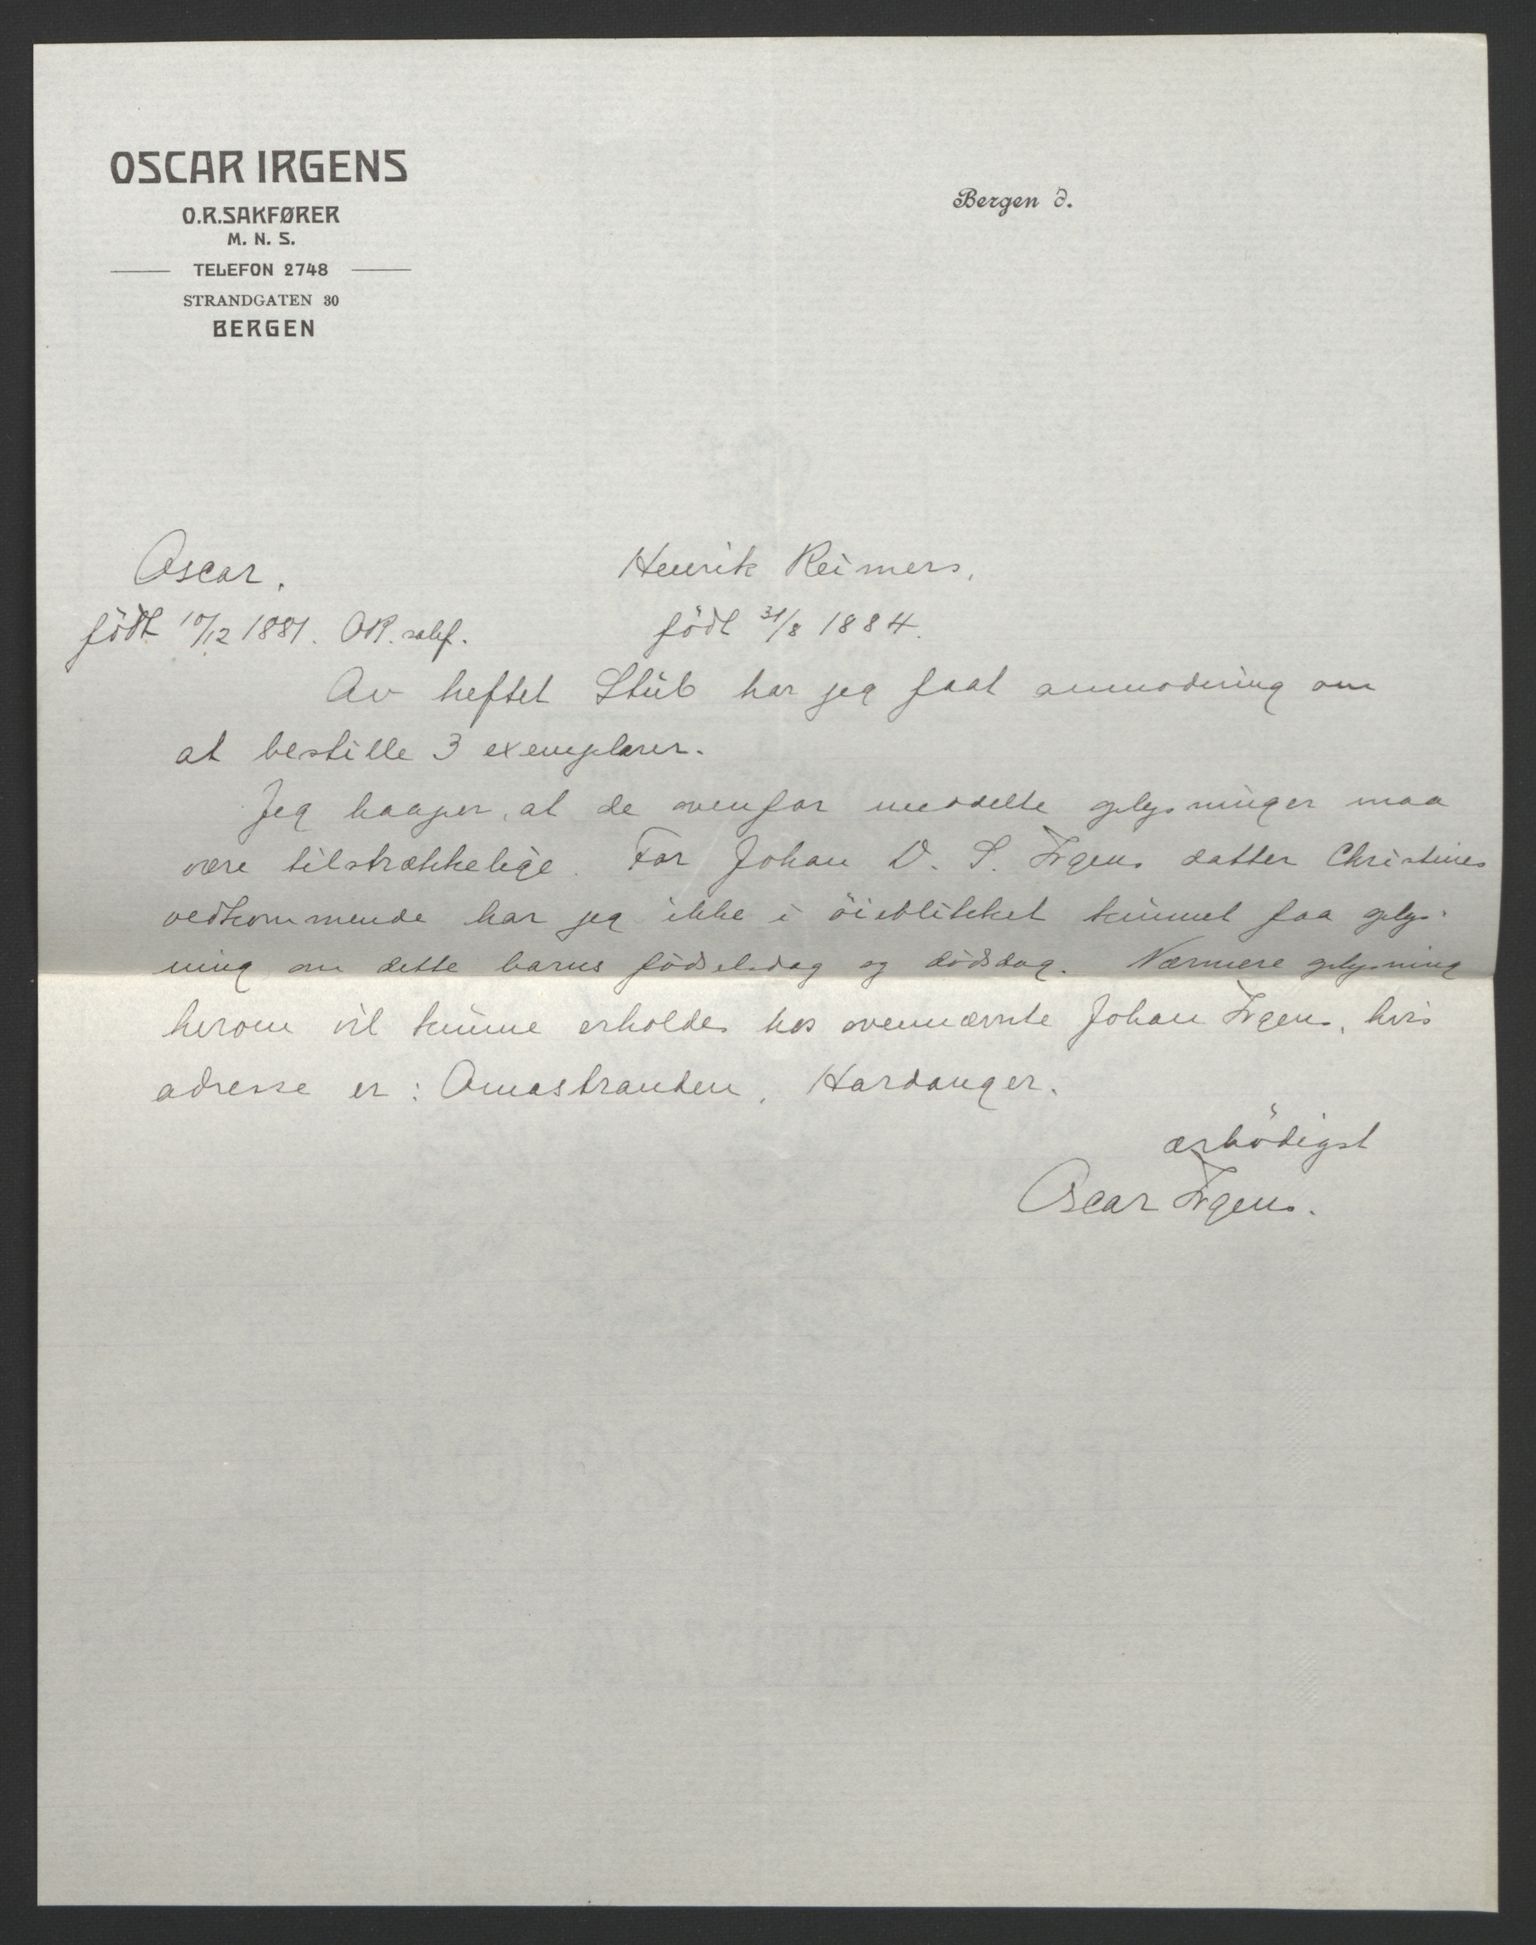 OSCAR IRGENS
O.R.SAKFØRER
M. N. S.
TELEFON 2748
STRANDGATEN 30
BERGEN
Bergen d.
Oscar. Henrik Reimers.
född 10/12 1881. OR. sakf. född 31/8 1884.
Av heftet Stub har jeg faat anmodning om
at bestille 3 exemplarer.
Jeg haaper, at de ovenfor meddelte oplysninger maa
være tilstrækkelige. For Johan D. S. Irgens datter Christines
vedkommende har jeg ikke i öieblikket kunnet faa oplys-
ning om dette barns födselsdag og dödsdag. Nærmere oplysning
herom vil kunne erholdes hos ovennævnte Johan Irgens, hvis
adresse er: Omastranden, Hardanger.
ærbödigst
Oscar Irgens.